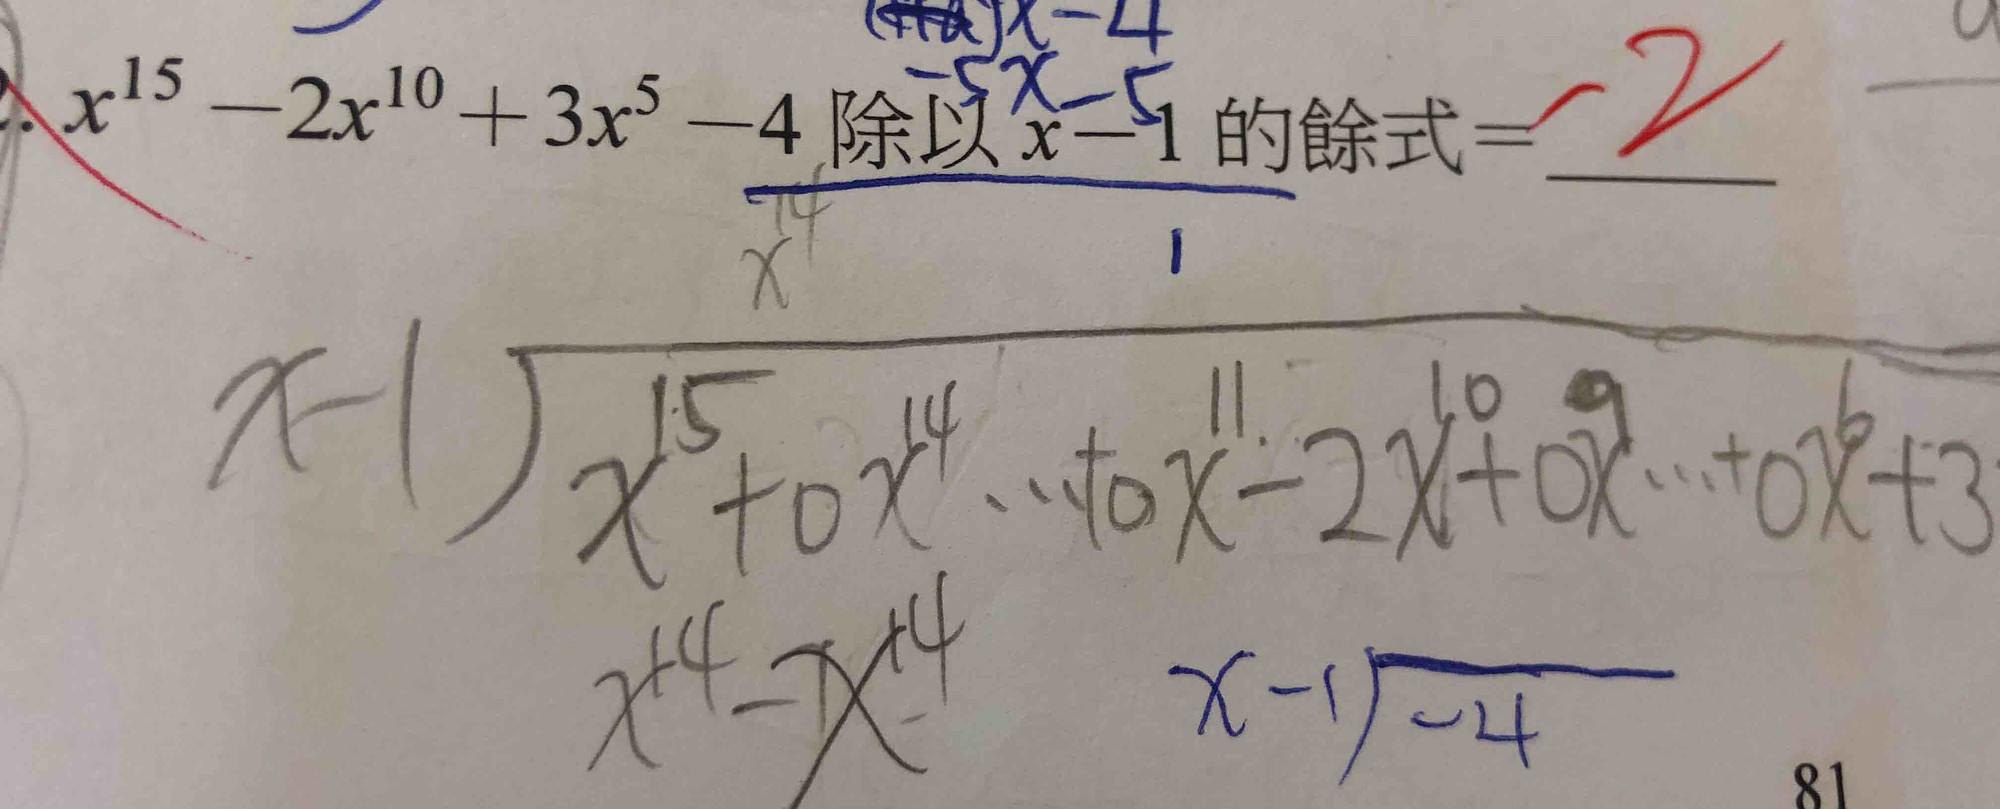 x-4
-5x-5
2. x^15 - 2x^10 + 3x^5 - 4 除以 x-1 的餘式= -2
x^14
1
x-1 x^15+0x^14...+0x^11-2x^10+0x^9...+0x^6+3
x^14-1x^14
x-1 -4
81